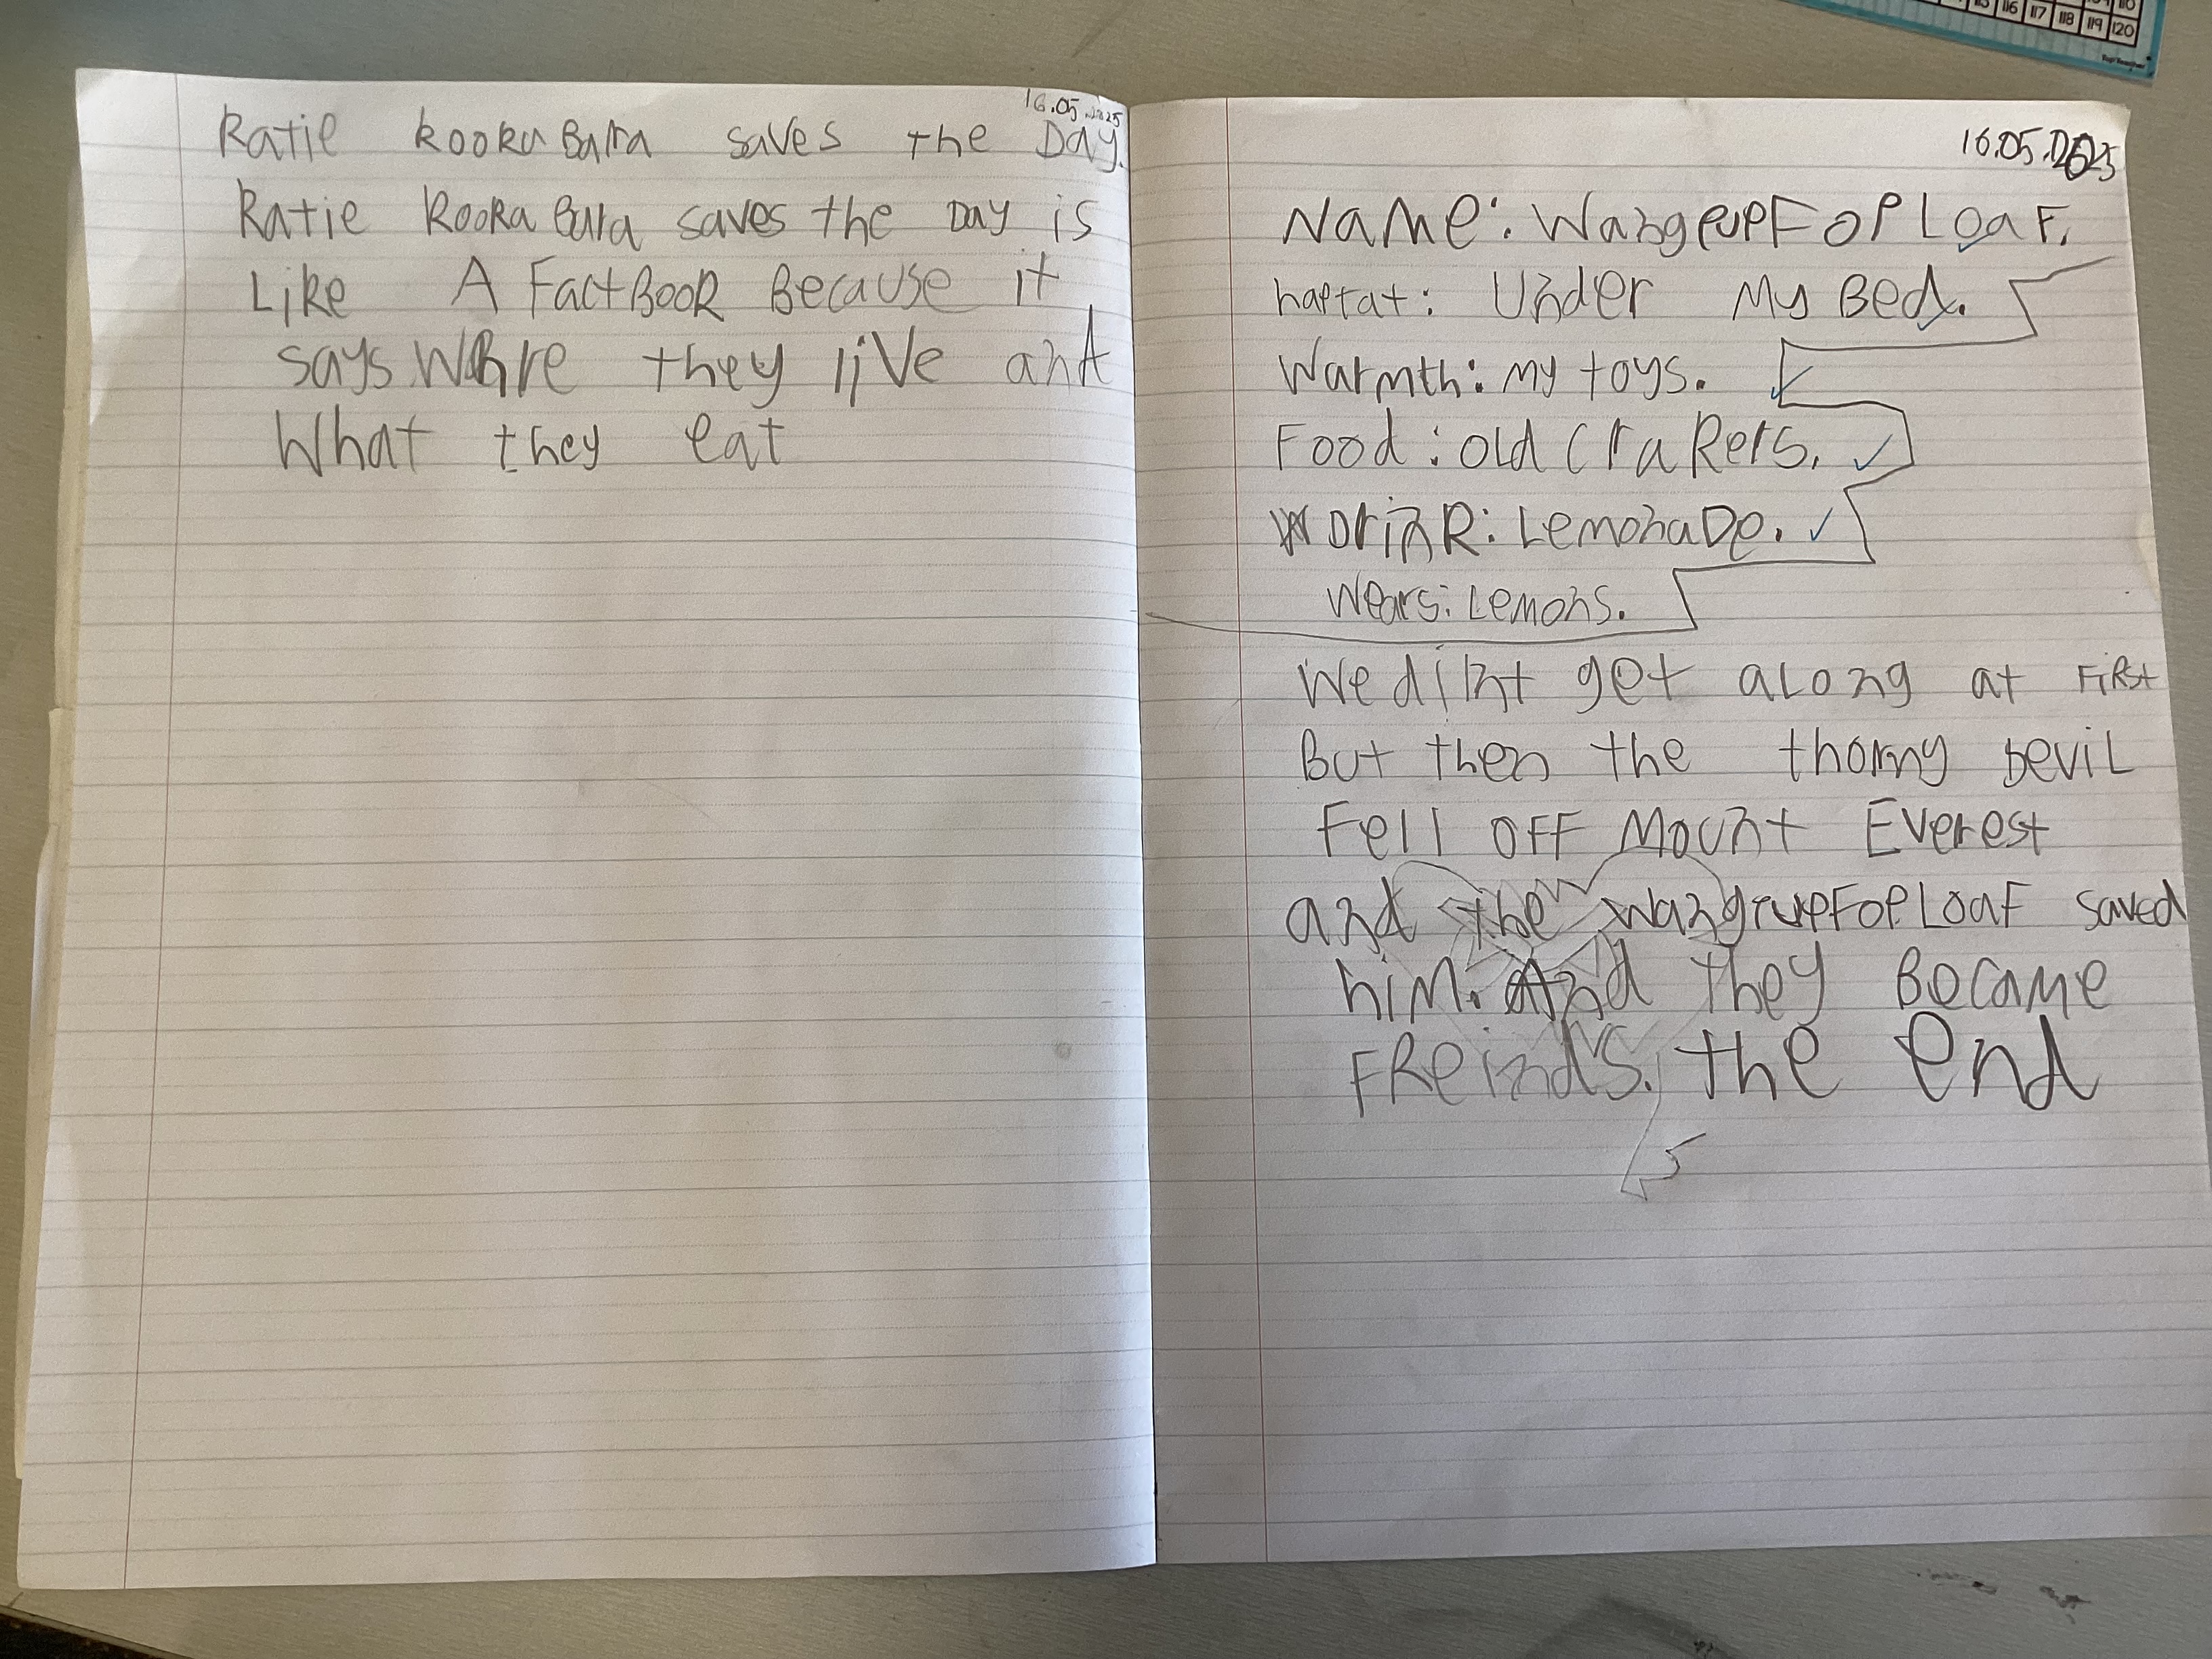 115 116 117 118 119 120
16.05.2025
Katie kookuBarra saves the Day.
Katie KookaBura saves the Day is
Like A FactBook Because it
says Whre they live and
What they eat
16.05.2025
Name: WangrupFopLoaF.
haptat: Under My Bed.
Warmth: my toys.
Food: old craKers.
DrinK: LemonaDe.
Wears: Lemons.
We didnt get aLong at First
But then the thorny DeviL
Fell OFF Mount Everest
and the wangrupFopLoaF saved
him. And they Became
FReinds. the end